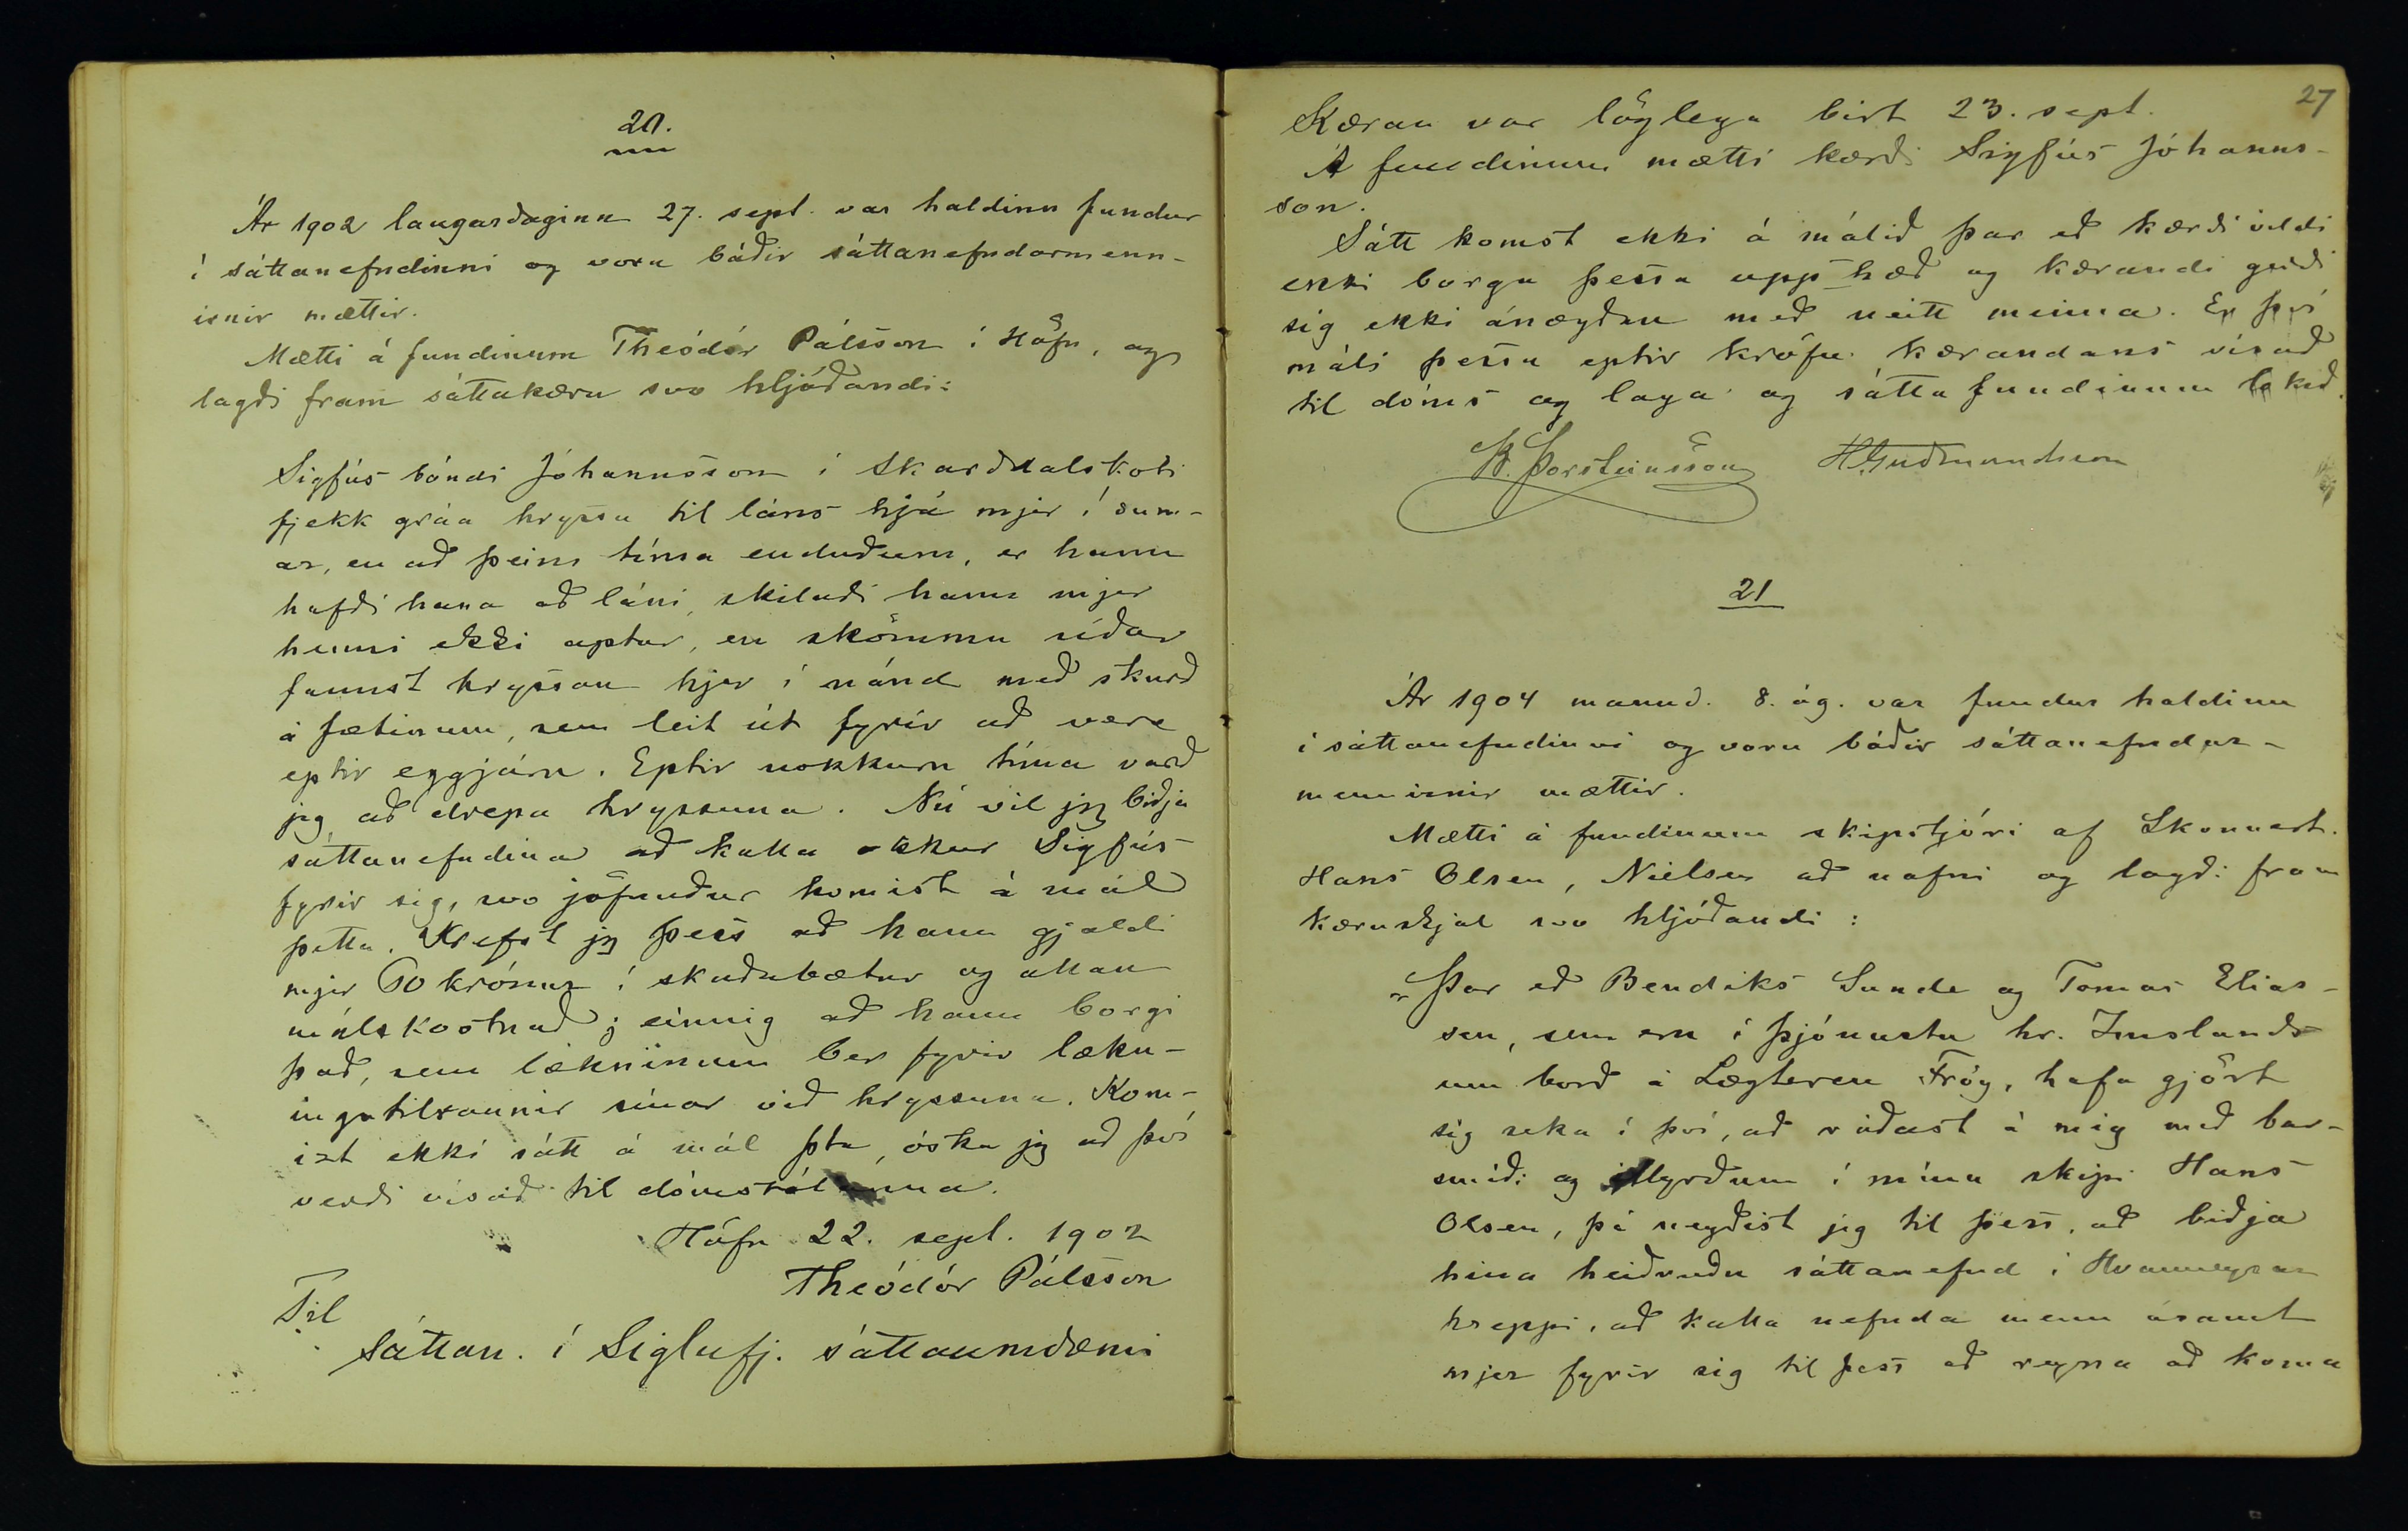 20.
Ár 1902 laugardaginn 27. sept. var haldinn fundur
í sáttanefndinni og voru báðir sáttanefndarmenn-
irnir mættir.
Mætti á fundinum Theódór Pálsson í Höfn, og
lagði fram sáttakæru svo hljóðandi:
Sigfús bóndi Jóhannsson í Skarðdalskoti
fjekk gráa hryssu til láns hjá mjer í sum-
ar, en að þeim tíma enduðum, er hann
hafði hana að láni, skilaði hann mjer
henni ekki aptur, en skömmu síðar
fannst hryssan hjer í nánd með skurð
á fætinum, sem leit út fyrir að vera
eptir eggjárn. Eptir nokkurn tíma varð
jeg að drepa hryssuna. Nú vil jeg biðja
sáttanefndina að kalla okkur Sigfús
fyrir sig, svo jöfnuður komist á mál
þetta. Krefst jeg þess að hann gjaldi
mjer 60 krónur í skaðabætur og allan
málskostnað; einnig að hann borgi
það, sem lækninum ber fyrir lækn-
ingatilraunir sínar við hryssuna. Kom-
ist ekki sátt á mál þta, óska jeg að því
verði vísað til dómstólanna.
Höfn 22. sept. 1902
Theódór Pálsson
Til
Sáttan. í Siglufj. sáttaumdæmi
27
Kæran var löglega birt 23. sept.
Á fundinum mætti kærði Sigfús Jóhanns-
son.
Sátt komst ekki á málið þar eð kærði vildi
ekki borga þessa upphæð og kærandi gerði
sig ekki ánægðan með neitt minna. Er því
máli þessu eptir kröfu kærandans vísað
til dóms og laga og sáttafundinum lokið.
B. Þorsteinsson H. Guðmundsson
21
Ár 1904 mánud. 8. ág. var fundur haldinn
í sáttanefndinni og voru báðir sáttanefndar-
mennirnir mættir.
Mætti á fundinum skipstjóri af Skonnert.
Hans Olsen, Nielsen að nafni og lagði fram
kæruskjal svo hljóðandi:
"Þar eð Bendiks Sunde og Tomas Elias-
sen, sem eru í þjónustu hr. Imslands
um borð á Lægteren Fröy, hafa gjört
sig seka í því, að ráðast á mig með bar-
smíði og illyrðum í mínu skipi Hans
Olsen, þá neyðist jeg til þess, að biðja
hina heiðruðu sáttanefnd í Hvanneyrar
hreppi, að kalla nefnda menn ásamt
mjer fyrir sig til þess að reyna að koma